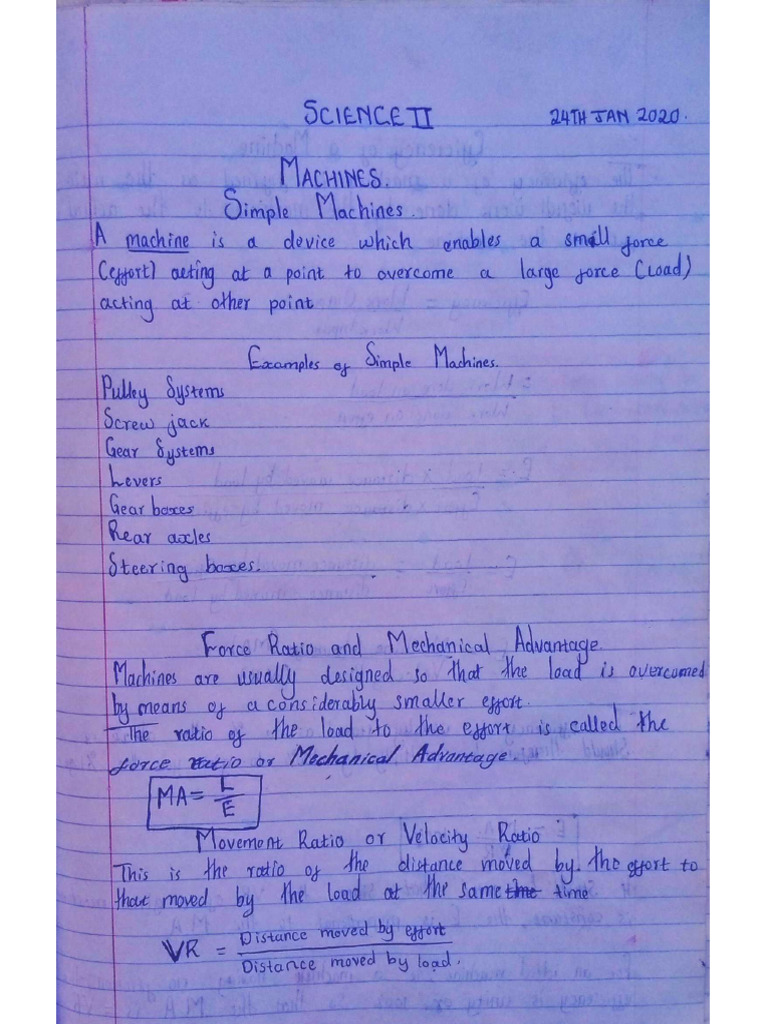 SCIENCE II 24TH JAN 2020.
MACHINES.
Simple Machines.
A machine is a device which enables a small force
(effort) acting at a point to overcome a large force (Load)
acting at other point
Examples of Simple Machines.
Pulley Systems
Screw jack
Gear Systems
Levers
Gear boxes
Rear axles
Steering boxes.
Force Ratio and Mechanical Advantage.
Machines are usually designed so that the load is overcomed
by means of a considerably smaller effort.
The ratio of the load to the effort is called the
force ratio or Mechanical Advantage.
MA = L/E
Movement Ratio or Velocity Ratio
This is the ratio of the distance moved by the effort to
that moved by the load at the same time
VR = Distance moved by effort
Distance moved by load.